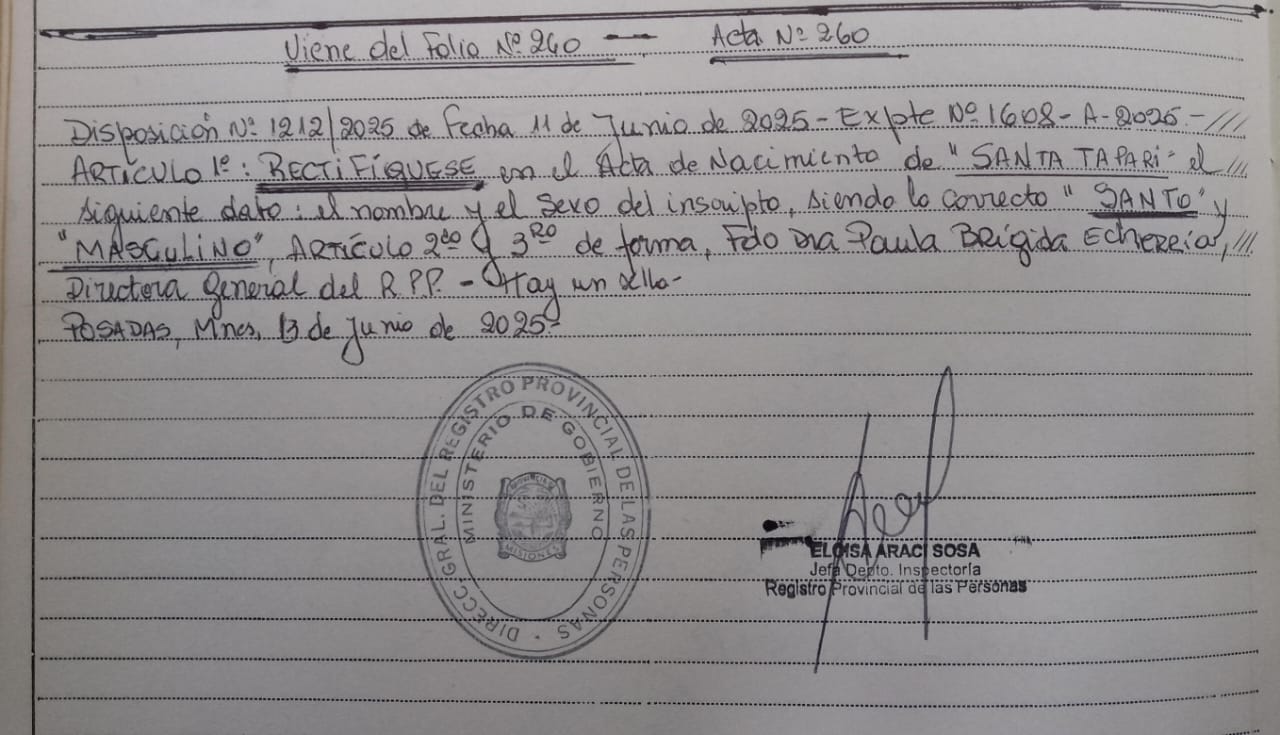 Viene del Folio Nº 260 — Acta Nº 260
Disposición Nº 1212/2025 de Fecha 11 de Junio de 2025 - Expte Nº 1608 - A - 2025.- ///
ARTÍCULO 1º: RECTIFÍQUESE en el Acta de Nacimiento de "SANTA TAPARI" el ///
siguiente dato: el nombre y el sexo del inscripto, siendo lo correcto "SANTO" y
"MASCULINO", ARTÍCULO 2do y 3RO de forma, Fdo Dra Paula Brígida Echerría, ///
Directora General del R.P.P. - Hay un sello -
POSADAS, Mnes, 13 de Junio de 2025-
DIRECC. GRAL. DEL REGISTRO PROVINCIAL DE LAS PERSONAS
MINISTERIO DE GOBIERNO
MISIONES
ELOISA ARACI SOSA
Jefa Depto. Inspectoría
Registro Provincial de las Personas